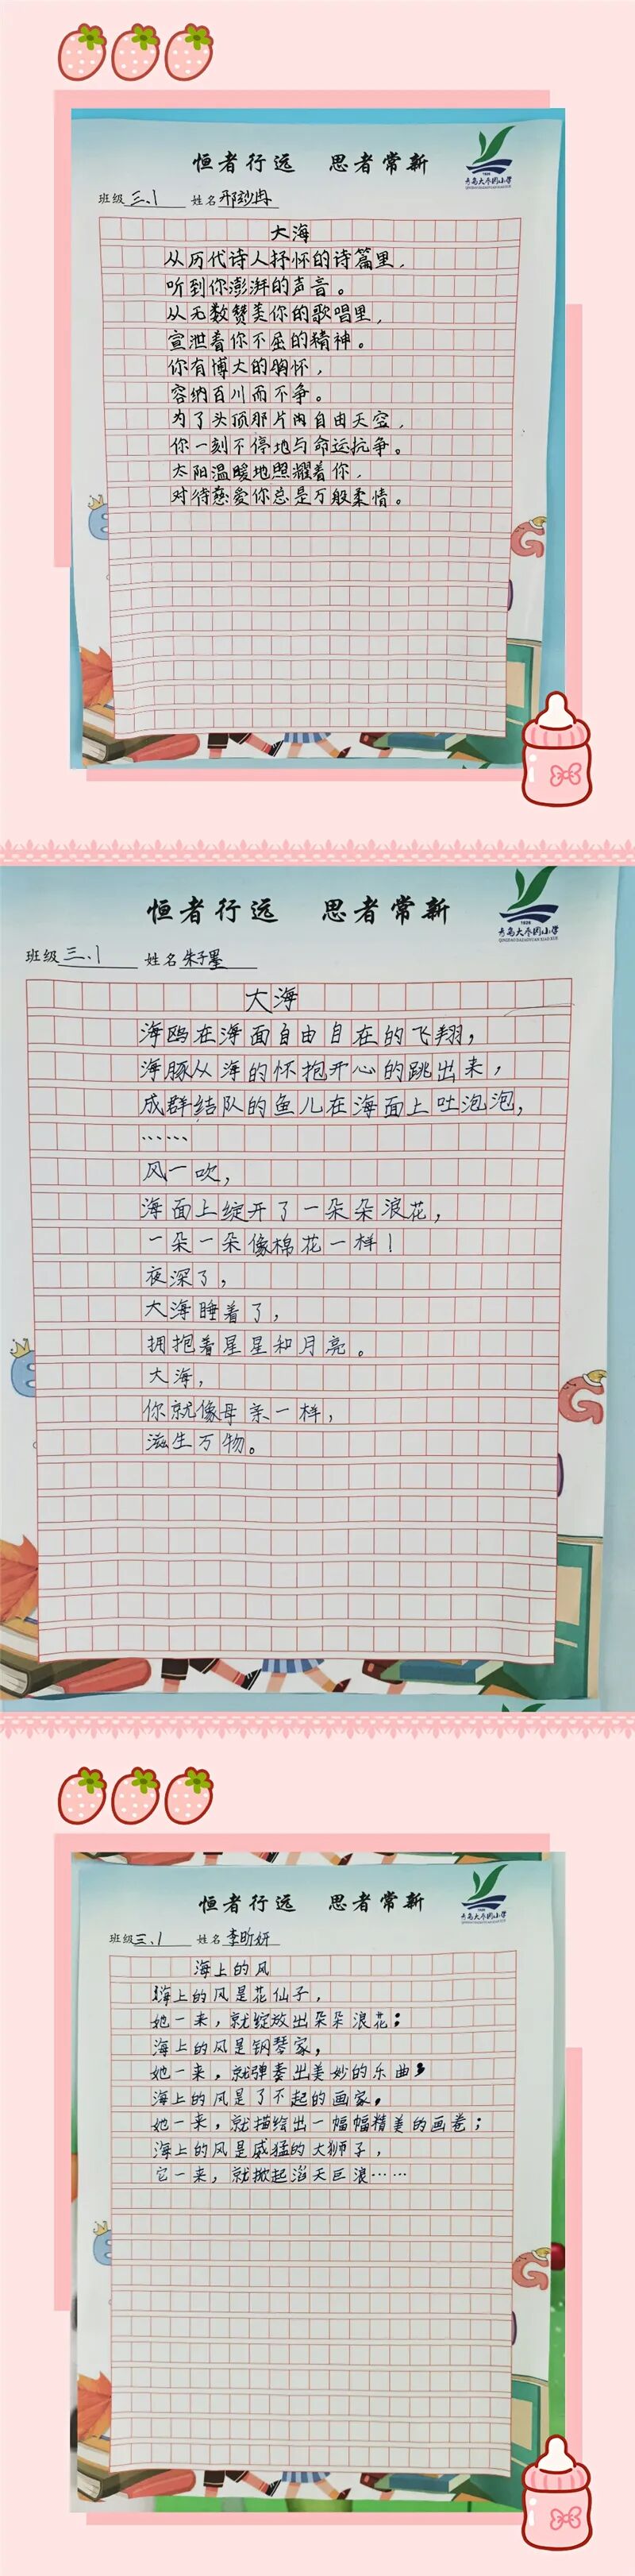 恒者行远 思者常新
青岛大枣园小学
班级 三.1 姓名
大海
从历代诗人抒怀的诗篇里，
听到你澎湃的声音。
从无数赞美你的歌唱里，
宣泄着你不屈的精神。
你有博大的胸怀，
容纳百川而不争。
为了头顶那片内自由天空，
你一刻不停地与命运抗争。
太阳温暖地照耀着你，
对待慈爱你总是万般柔情。
恒者行远 思者常新
1926
青岛大枣园小学
QINGDAO DAZAOYUAN XIAO XUE
班级 三.1 姓名 朱子墨
大海
海鸥在海面自由自在的飞翔，
海豚从海的怀抱开心的跳出来，
成群结队的鱼儿在海面上吐泡泡，
……
风一吹，
海面上绽开了一朵朵浪花，
一朵一朵像棉花一样！
夜深了，
大海睡着了，
拥抱着星星和月亮。
大海，
你就像母亲一样，
滋生万物。
恒者行远 思者常新
青岛大枣园小学
班级 三.1 姓名 李昕妍
海上的风
海上的风是花仙子，
她一来，就绽放出朵朵浪花；
海上的风是钢琴家，
她一来，就弹奏出美妙的乐曲；
海上的风是了不起的画家，
她一来，就描绘出一幅幅精美的画卷；
海上的风是威猛的大狮子，
它一来，就掀起滔天巨浪……